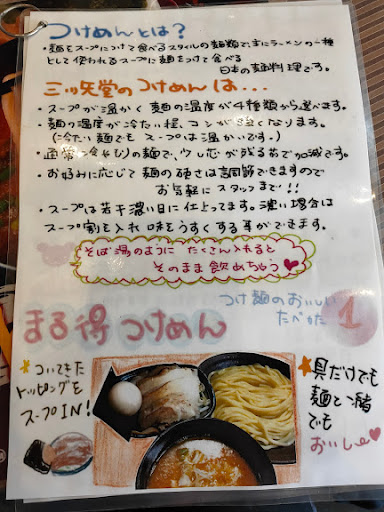 つけめんとは？
・麺をスープにつけて食べるスタイルの麺類で、主にラーメンの一種
として使われるスープに麺をつけて食べる
日本の麺料理です。
三ツ矢堂のつけめんは...
・スープが温かく麺の温度が4種類から選べます。
・麺の温度が冷たい程、コシが強くなります。
(冷たい麺でもスープは温かいです。)
・通常(冷やむり)の麺で、少し芯が残る茹で加減です。
・お好みに応じて麺の硬さは調節できますので
お気軽にスタッフまで!!
・スープは若干濃い目に仕上ってます。濃い場合は
スープ割を入れ味をうすくする事ができます。
そば湯のようにたくさん入れると
そのまま飲めちゃう♥
つけ麺のおいしい
たべかた
1
まる得つけめん
※ついてきた
トッピングを
スープIN!
★具だけでも
麺と一緒
でも
おいしい♥